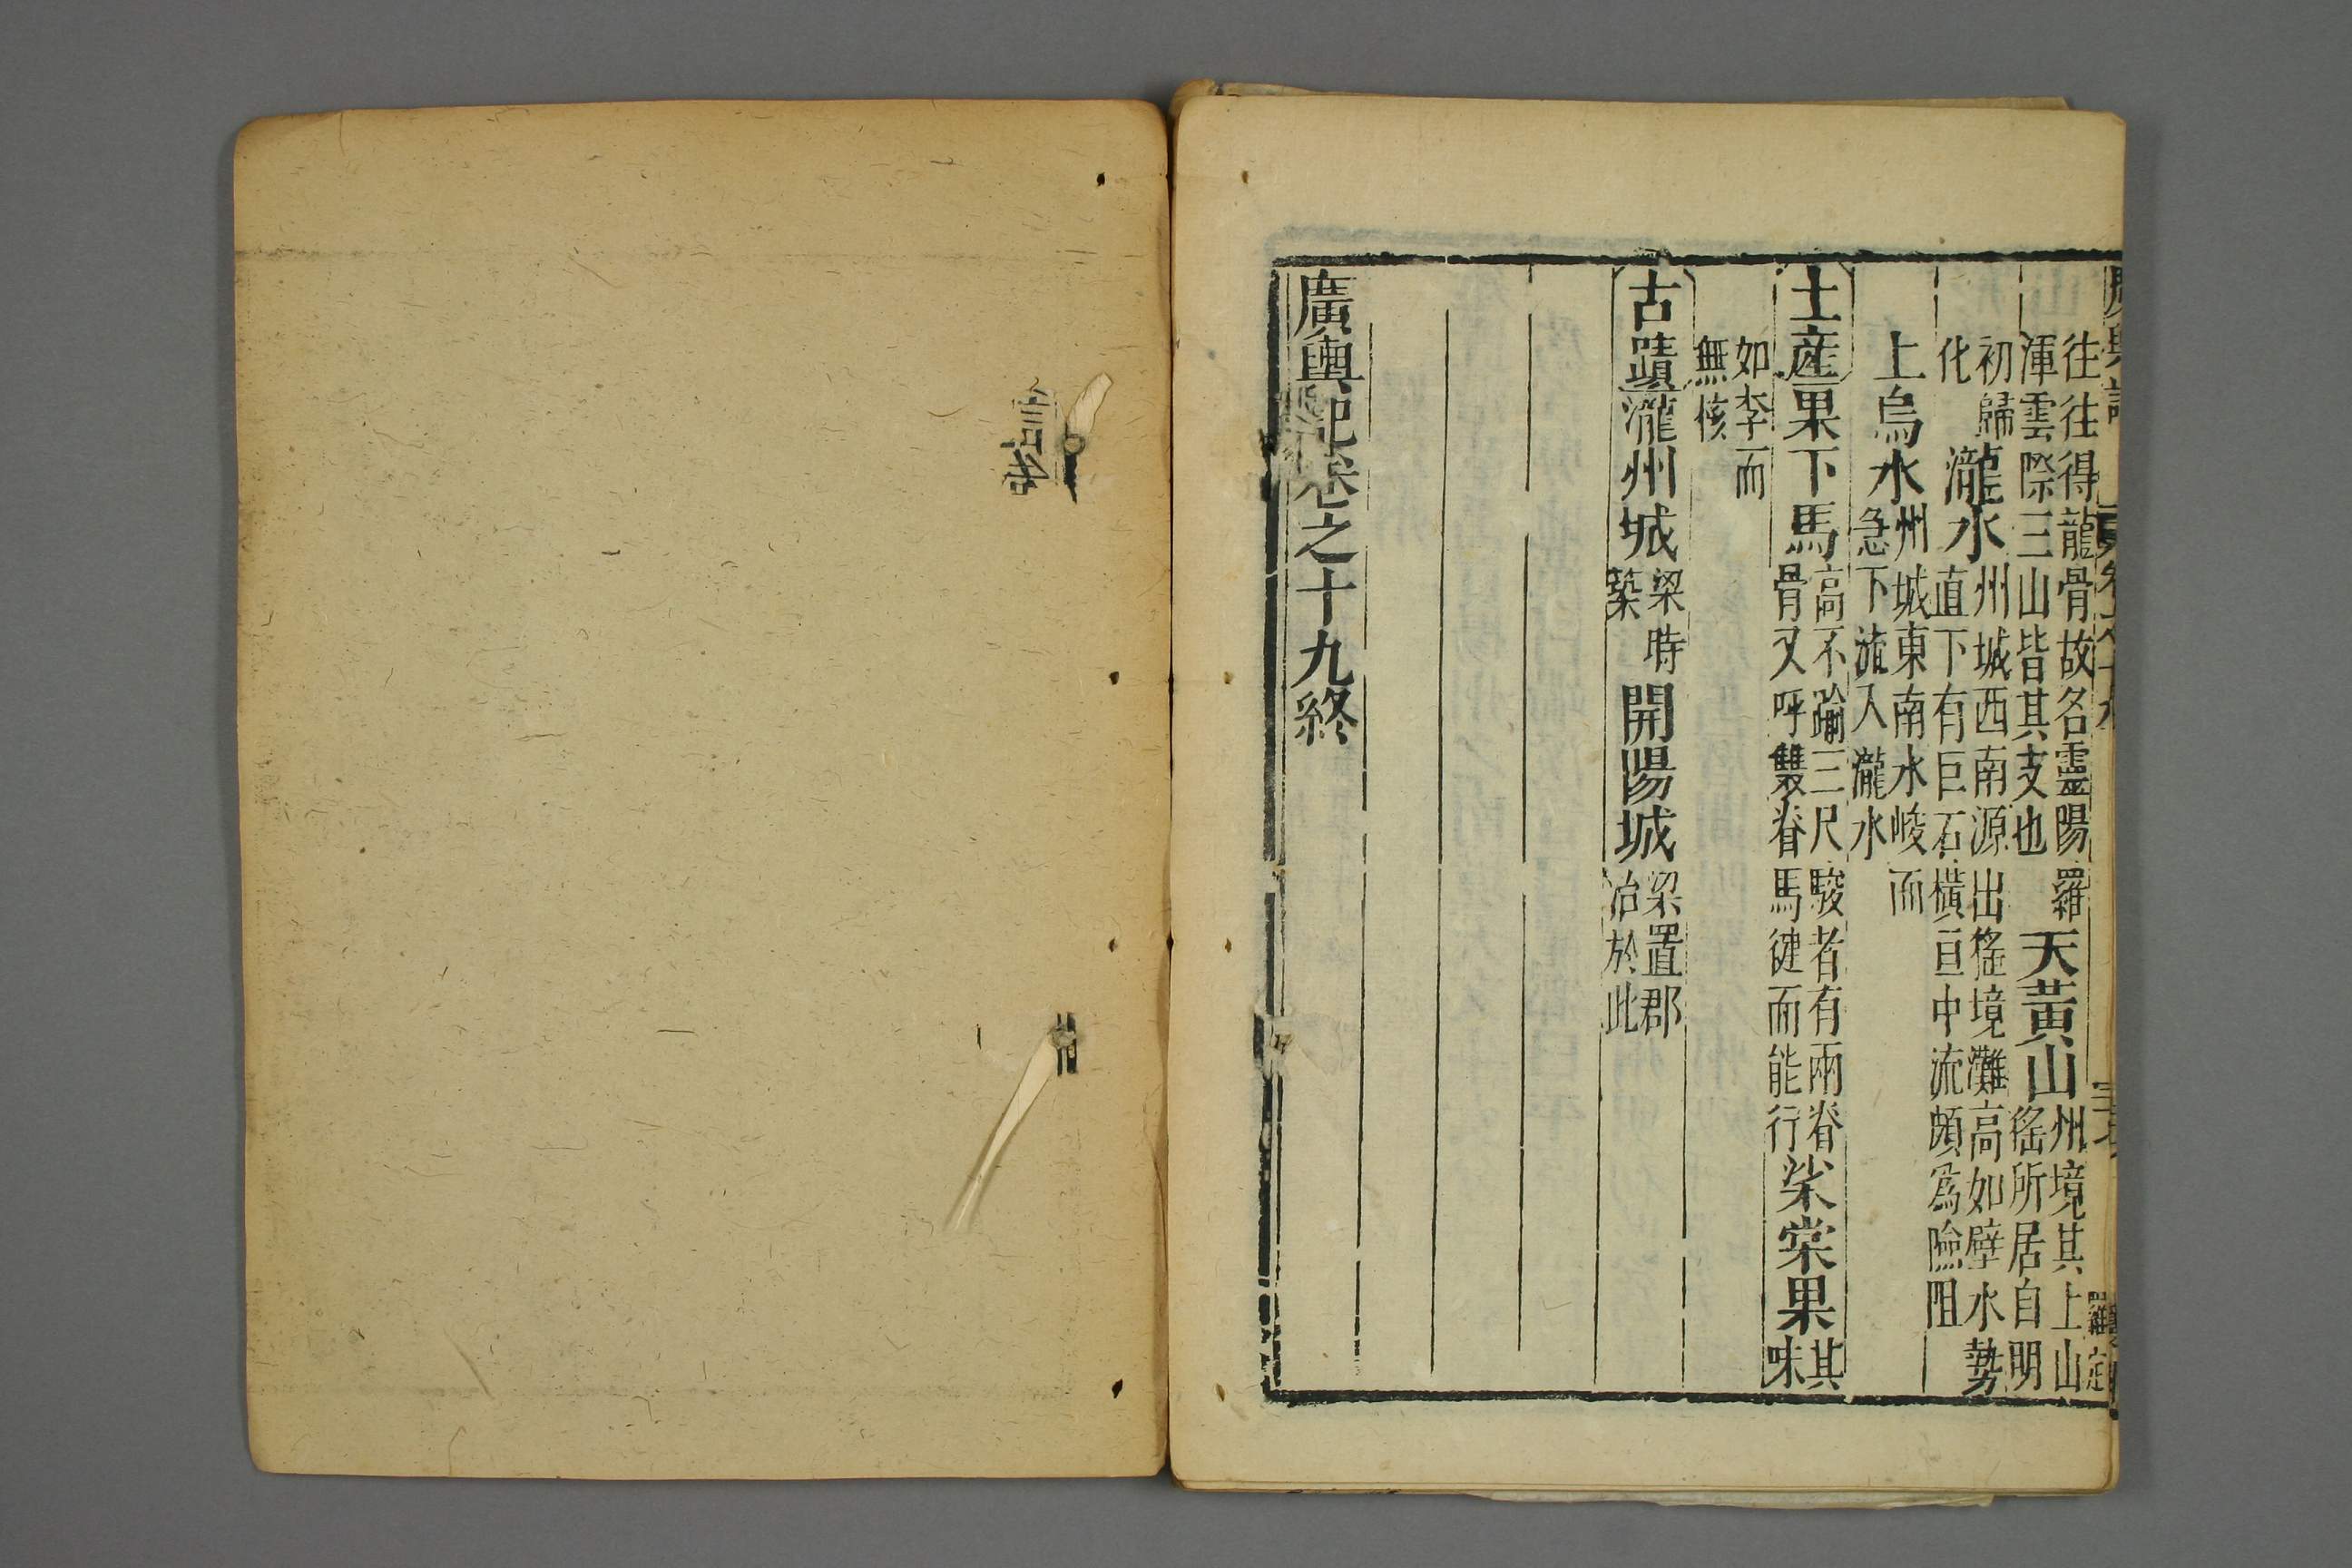 廣輿記
羅定
往往得龍骨故名靈陽羅渾雲際三山皆其支也天黃山州境其上山徭所居自明
初歸化瀧水州城西南源出徭境灘高如壁水勢直下有巨石橫亘中流頗爲險阻
上烏水州城東南水峻而急下流入瀧水
土産果下馬高不踰三尺駿者有兩脊骨又呼雙脊馬健而能行桬棠果其味
如李而無核
古蹟瀧州城梁時築開陽城梁置郡治於此
廣輿記卷之十九終